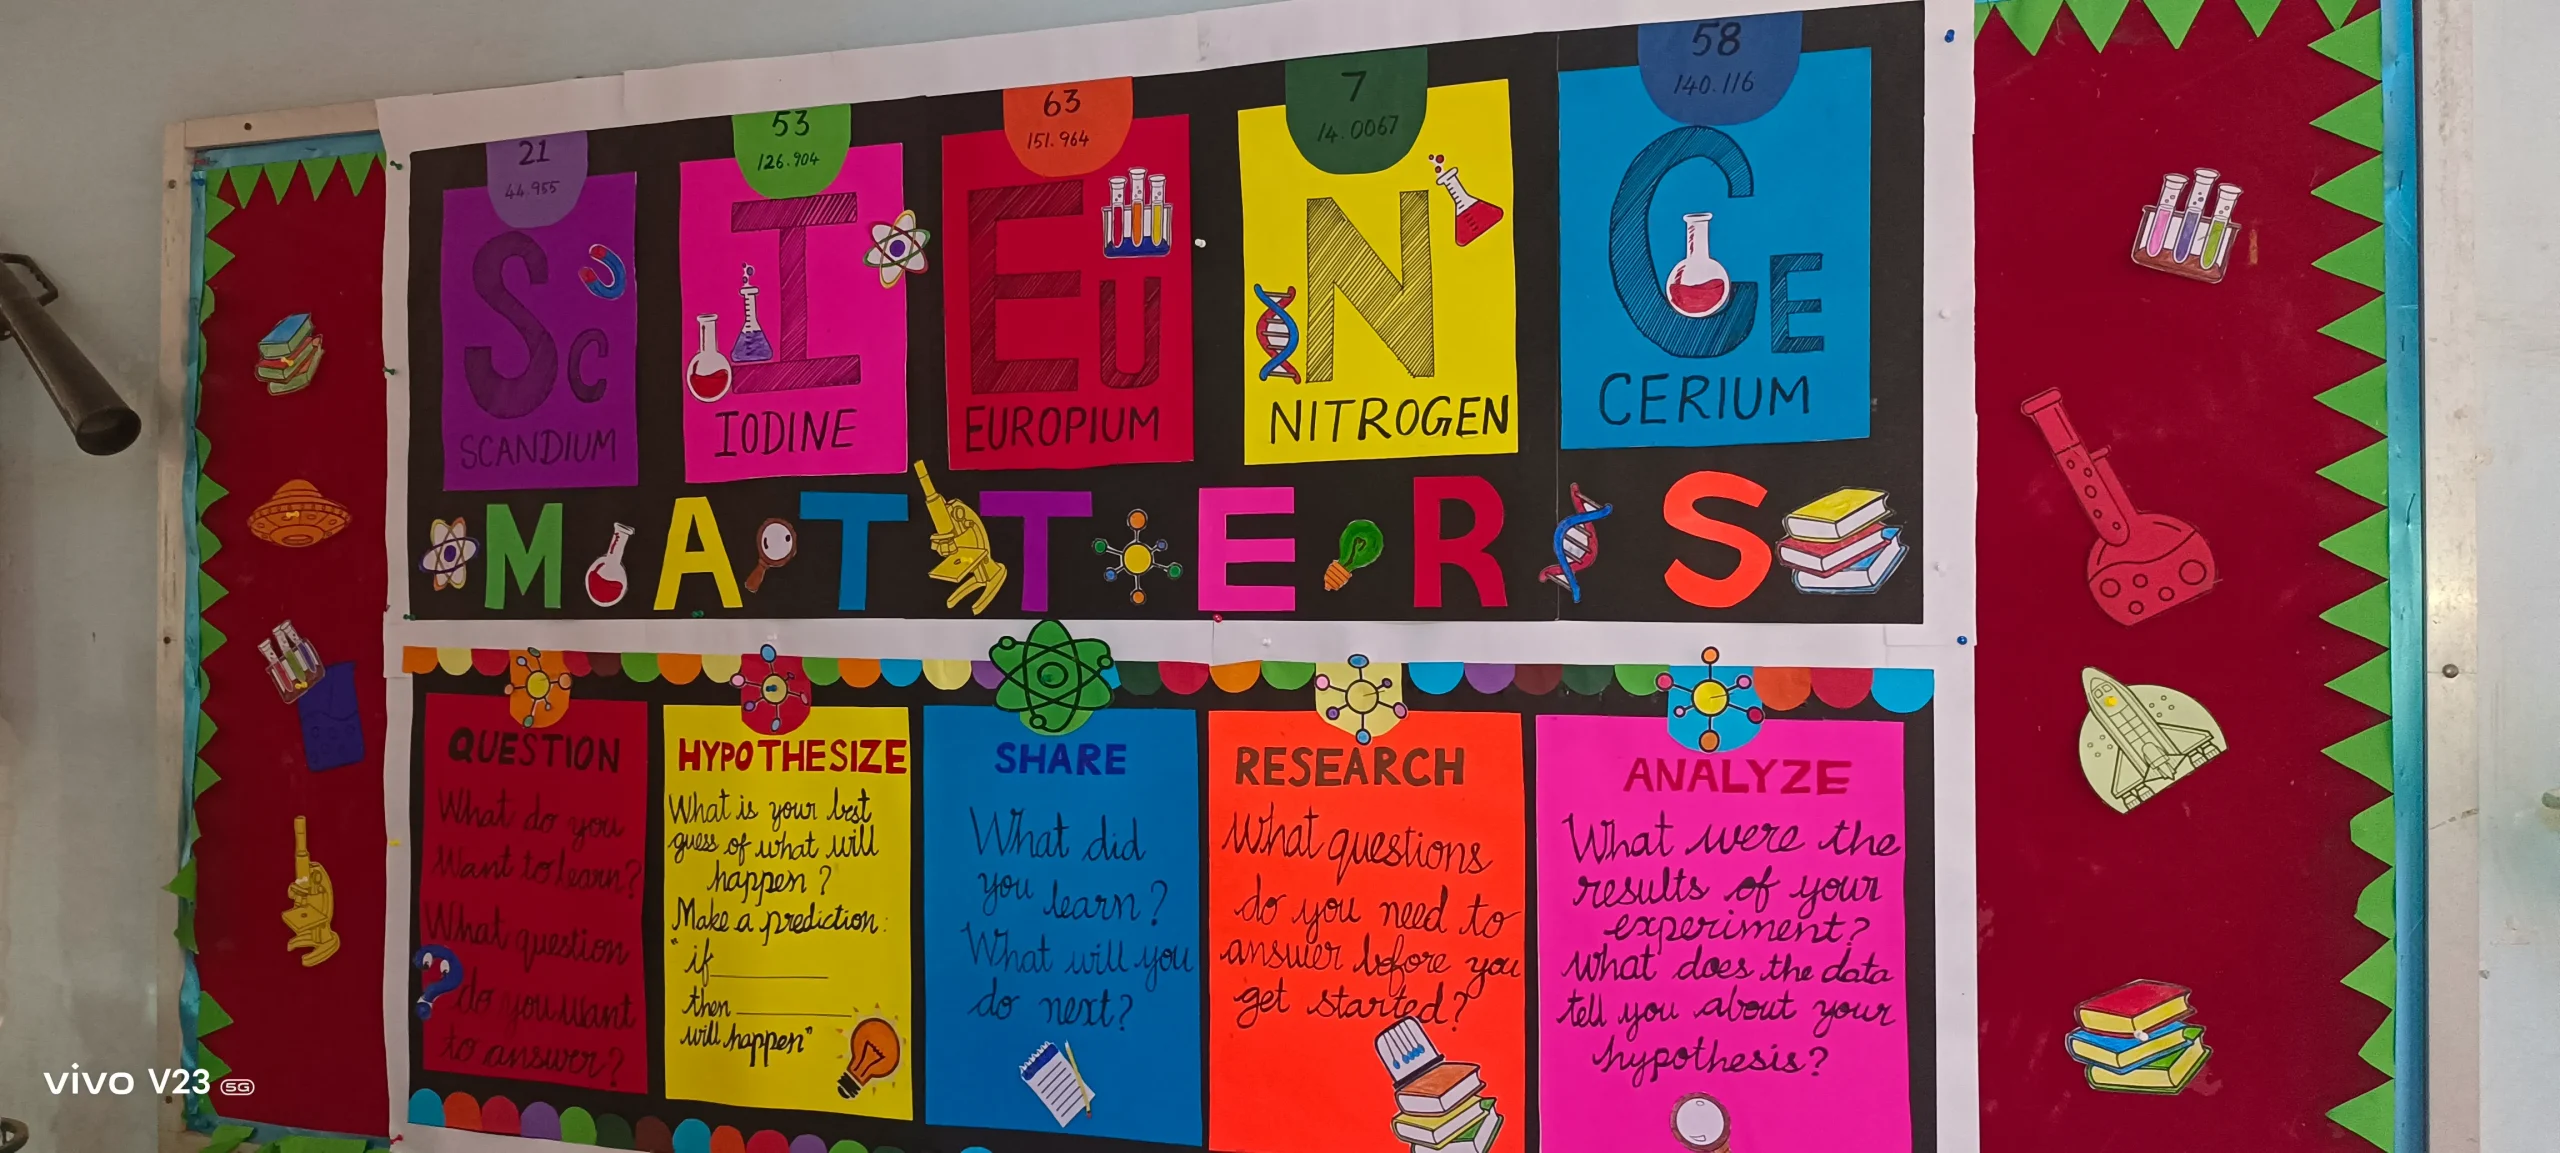 21
44.955
Sc
SCANDIUM
53
126.904
I
IODINE
63
151.964
EU
EUROPIUM
7
14.0067
N
NITROGEN
58
140.116
CE
CERIUM
MATTERS
QUESTION
What do you
Want to learn?
What question
do you want
to answer?
HYPOTHESIZE
What is your best
guess of what will
happen?
Make a prediction:
"if__________
then__________
will happen"
SHARE
What did
you learn?
What will you
do next?
RESEARCH
What questions
do you need to
answer before you
get started?
ANALYZE
What were the
results of your
experiment?
What does the data
tell you about your
hypothesis?
vivo V23 5G